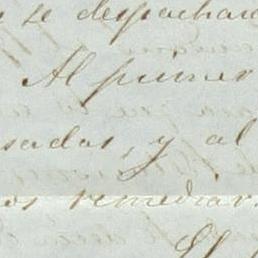 y se despachar
Al primer
sadas, y al
os remediar
El